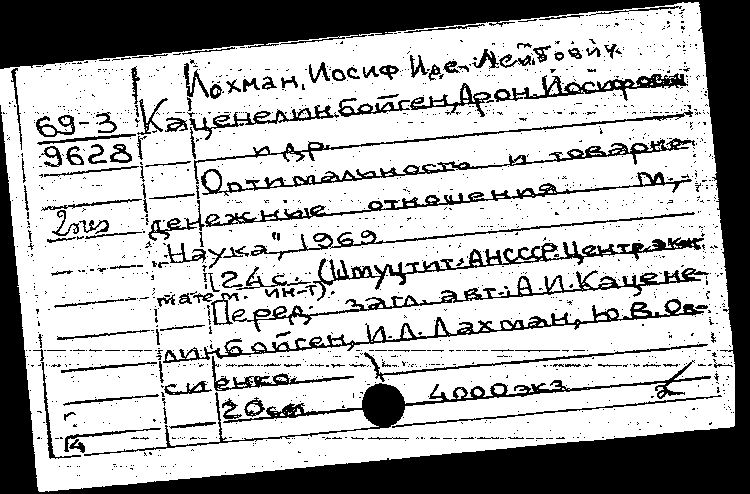 Лохман, Иосиф Иде-Лейбович
69-3 Каценелинбойген, Арон Иосифович
9628 и др.
Оптимальность и товарно-
2 экз денежные отношения. М.,
„Наука", 1969
124 с. (Шмуцтит.: АН СССР. Центр. экон.
матем. ин-т).
Перед загл. авт.: А.И. Кацене-
линбойген, И.Л. Лахман, Ю.В. Ов-
сиенко.
20 см. 4000 экз